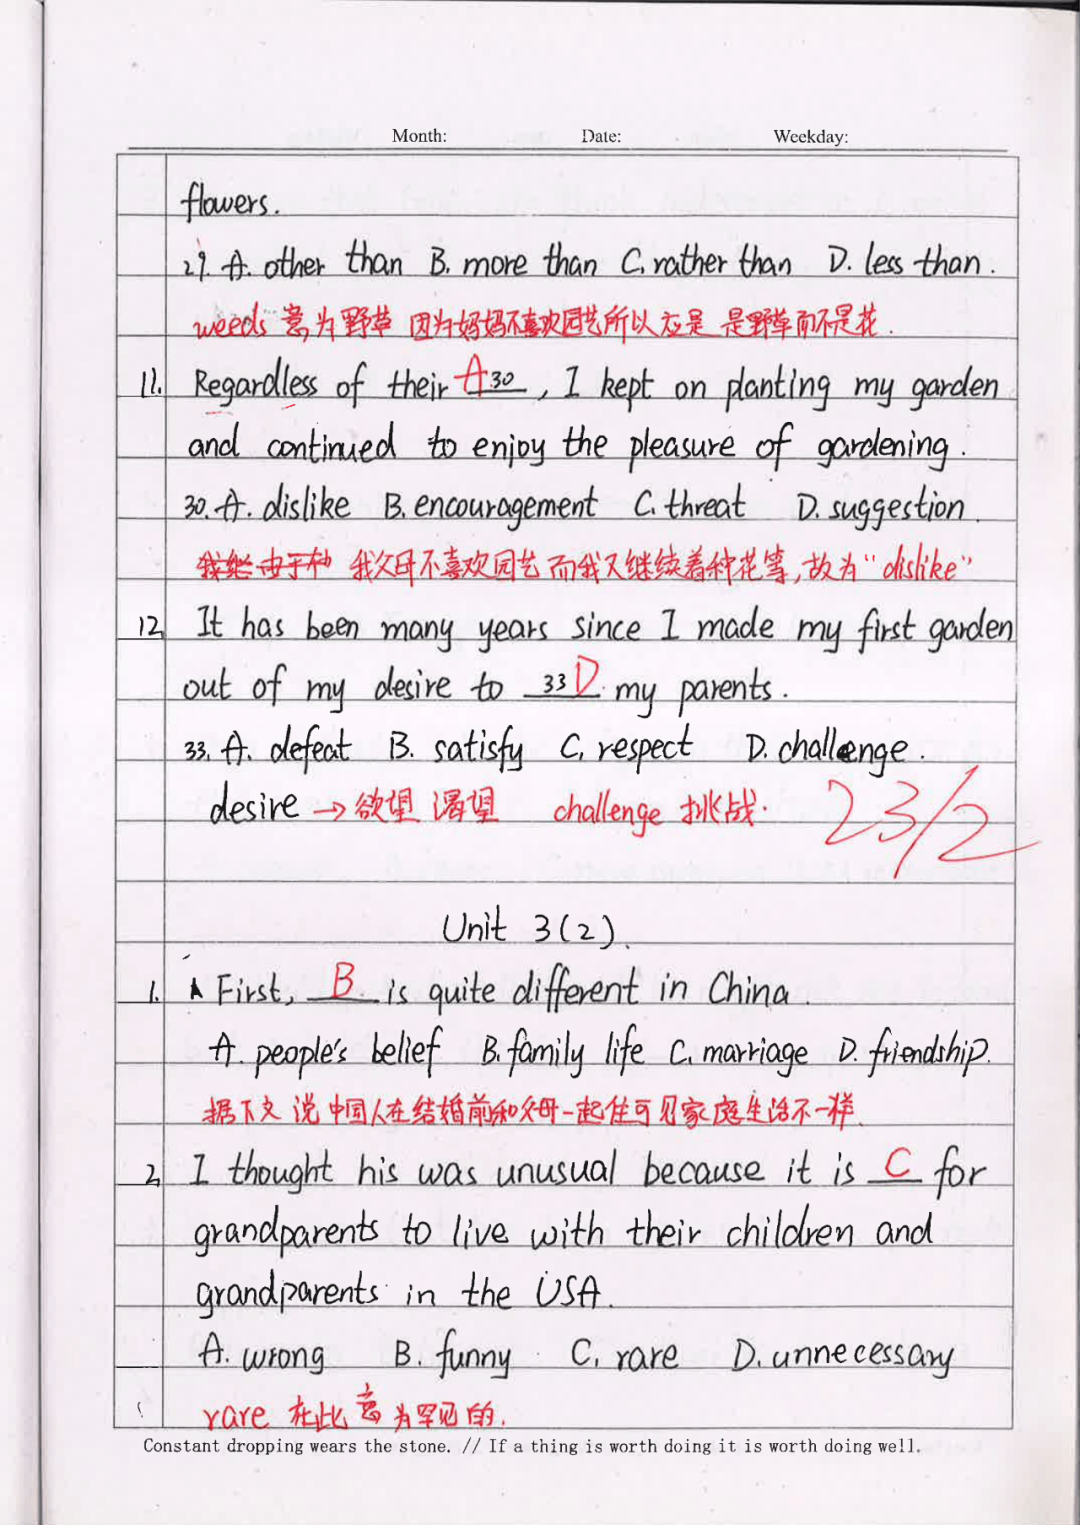 Month: Date: Weekday:
flowers.
29. A. other than B. more than C. rather than D. less than.
weeds 意为野草 因为妈妈不喜欢园艺所以应是 是野草而不是花.
11. Regardless of their A 30, I kept on planting my garden
and continued to enjoy the pleasure of gardening.
30. A. dislike B. encouragement C. threat D. suggestion.
我父母不喜欢园艺 而我又继续着种花等,故为"dislike"
12 It has been many years since I made my first garden
out of my desire to 33 D. my parents.
33. A. defeat B. satisfy C. respect D. challenge.
desire → 欲望 渴望 challenge 挑战.
23/2
Unit 3(2).
1. First, B is quite different in China.
A. people's belief B. family life C. marriage D. friendship.
据下文说中国人在结婚前和父母一起住可见家庭生活不一样.
2. I thought his was unusual because it is C for
grandparents to live with their children and
grandparents in the USA.
A. wrong B. funny C. rare D. unnecessary
rare 在此意为罕见的.
Constant dropping wears the stone. // If a thing is worth doing it is worth doing well.